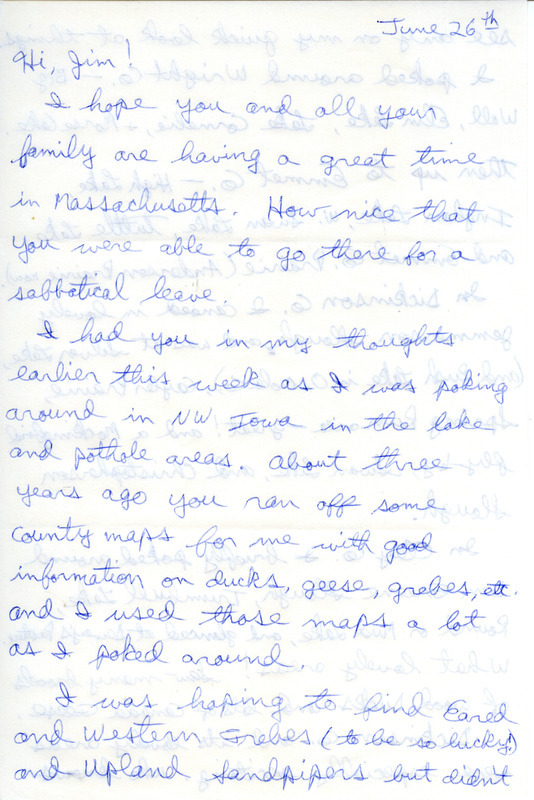 June 26th
Hi, Jim!
I hope you and all your
family are having a great time
in Massachusetts. How nice that
you were able to go there for a
sabbatical leave.
I had you in my thoughts
earlier this week as I was poking
around in NW Iowa in the lake
and pothole areas. About three
years ago you ran off some
county maps for me with good
information on ducks, geese, grebes, etc.
and I used those maps a lot
as I poked around.
I was hoping to find Eared
and Western Grebes (to be so lucky!)
and Upland Sandpipers but didn't